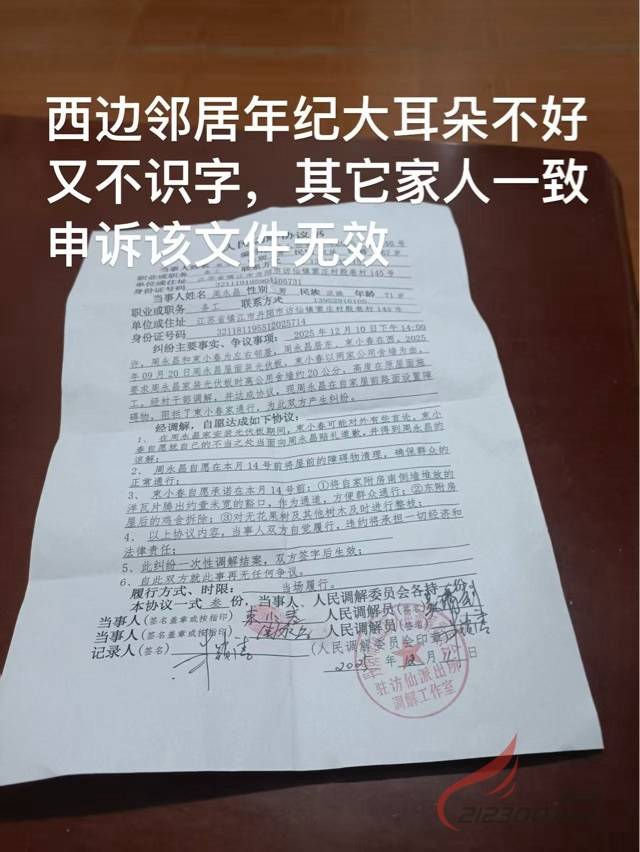 西边邻居年纪大耳朵不好
又不识字，其它家人一致
申诉该文件无效
人民 协议书
职业或职务 务工 联系方式
单位或住址 江苏省镇江市丹阳市访仙镇窦庄村殷巷村145号
身份证号码
当事人姓名 周永昌 性别 男 民族 汉族 年龄 71岁
职业或职务 务工 联系方式 13952916105
单位或住址 江苏省镇江市丹阳市访仙镇窦庄村殷巷村145号
身份证号码 321181195512025714
纠纷主要事实、争议事项： 2025年12月10日下午14:00
许，周永昌和束小春为左右邻居，周永昌居东，束小春在西。2025
年09月20日周永昌屋面装光伏板，束小春以两家公用舍墙为由，
要求周永昌家装光伏板时离公用舍墙约20公分，高度在原屋面施
工。经村干部调解，并达成协议，现周永昌在自家屋前路面设置障
碍物，阻拦了束小春家通行，为此双方产生纠纷。
经调解，自愿达成如下协议：
1、在周永昌家安装光伏板期间，束小春可能对外有些言论，束小
春自愿就自己的不当之处当面向周永昌赔礼道歉，并得到周永昌的
谅解；
2、周永昌自愿在本月14号前将屋前的障碍物清理，确保群众的
正常通行；
3、束小春自愿承诺在本月14号前：①将自家附房南侧墙堆放的
洋瓦片腾出约壹米宽的豁口，作为通道，方便群众通行；②东附房
屋后的鸡舍拆除；③对无花果树及其他树木及时进行整枝；
4、以上协议内容，当事人双方自觉履行，违约将承担一切经济和
法律责任；
5、此纠纷一次性调解结案，双方签字后生效；
6、自此双方就此事再无任何争议。
履行方式、时限： 当场履行。
本协议一式 叁 份，当事人、人民调解委员会各持一份
当事人（签名盖章或按指印） 束小春 人民调解员（签名）
当事人（签名盖章或按指印） 周永昌 人民调解员（签名）
记录人（签名） （人民调解委员会印章）
2025 年 12 月 11 日
驻访仙派出所
调解工作室
212300